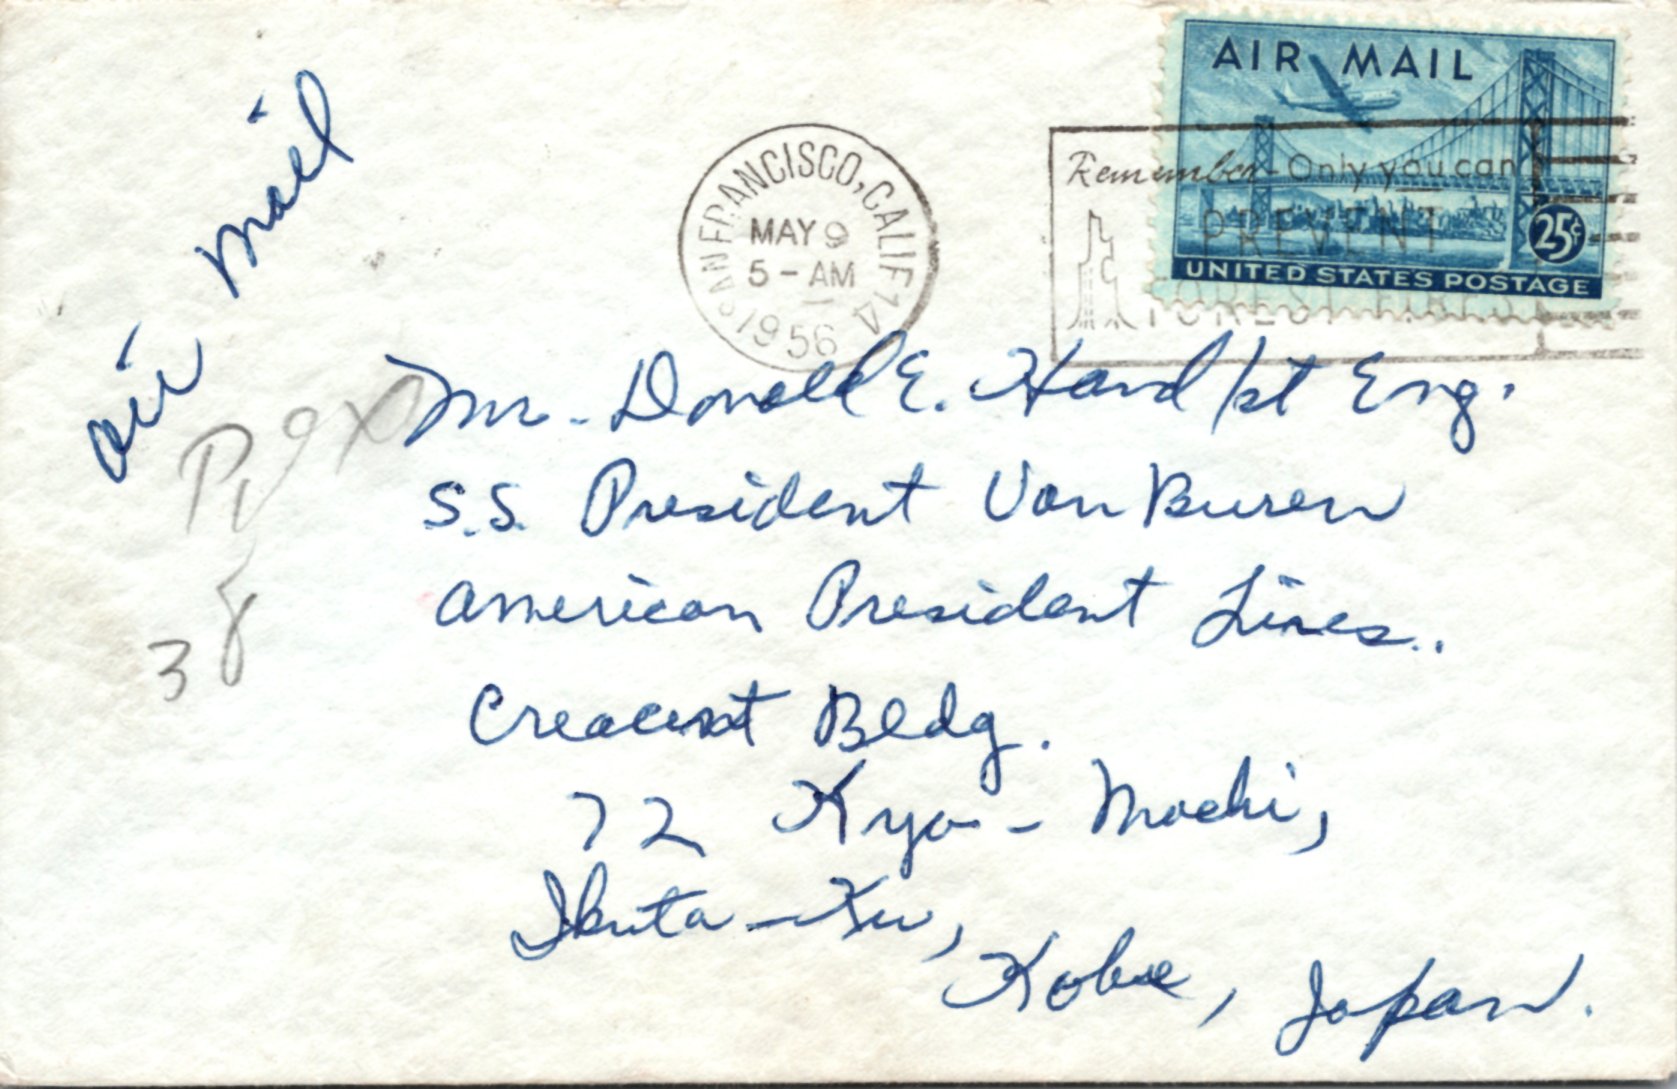 AIR MAIL
25¢
UNITED STATES POSTAGE
SAN FRANCISCO, CALIF 14
MAY 9
5 - AM
1956
Remember - Only you can
PREVENT
FOREST FIRES
air mail
Mr. Donald E. Hand 1st Eng.
S.S. President Van Buren
American President Lines..
Crescent Bldg.
72 Kyo - Machi,
Ikuta - Ku,
Kobe, Japan.
3